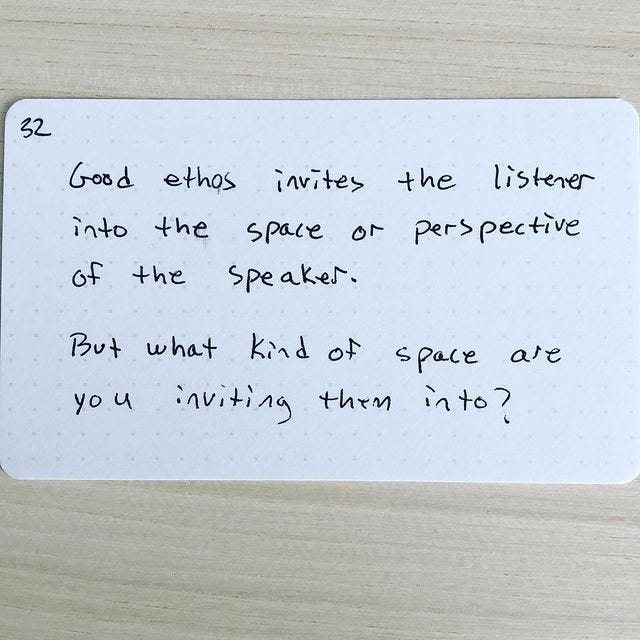 32
Good ethos invites the listener
into the space or perspective
of the speaker.
But what kind of space are
you inviting them into?